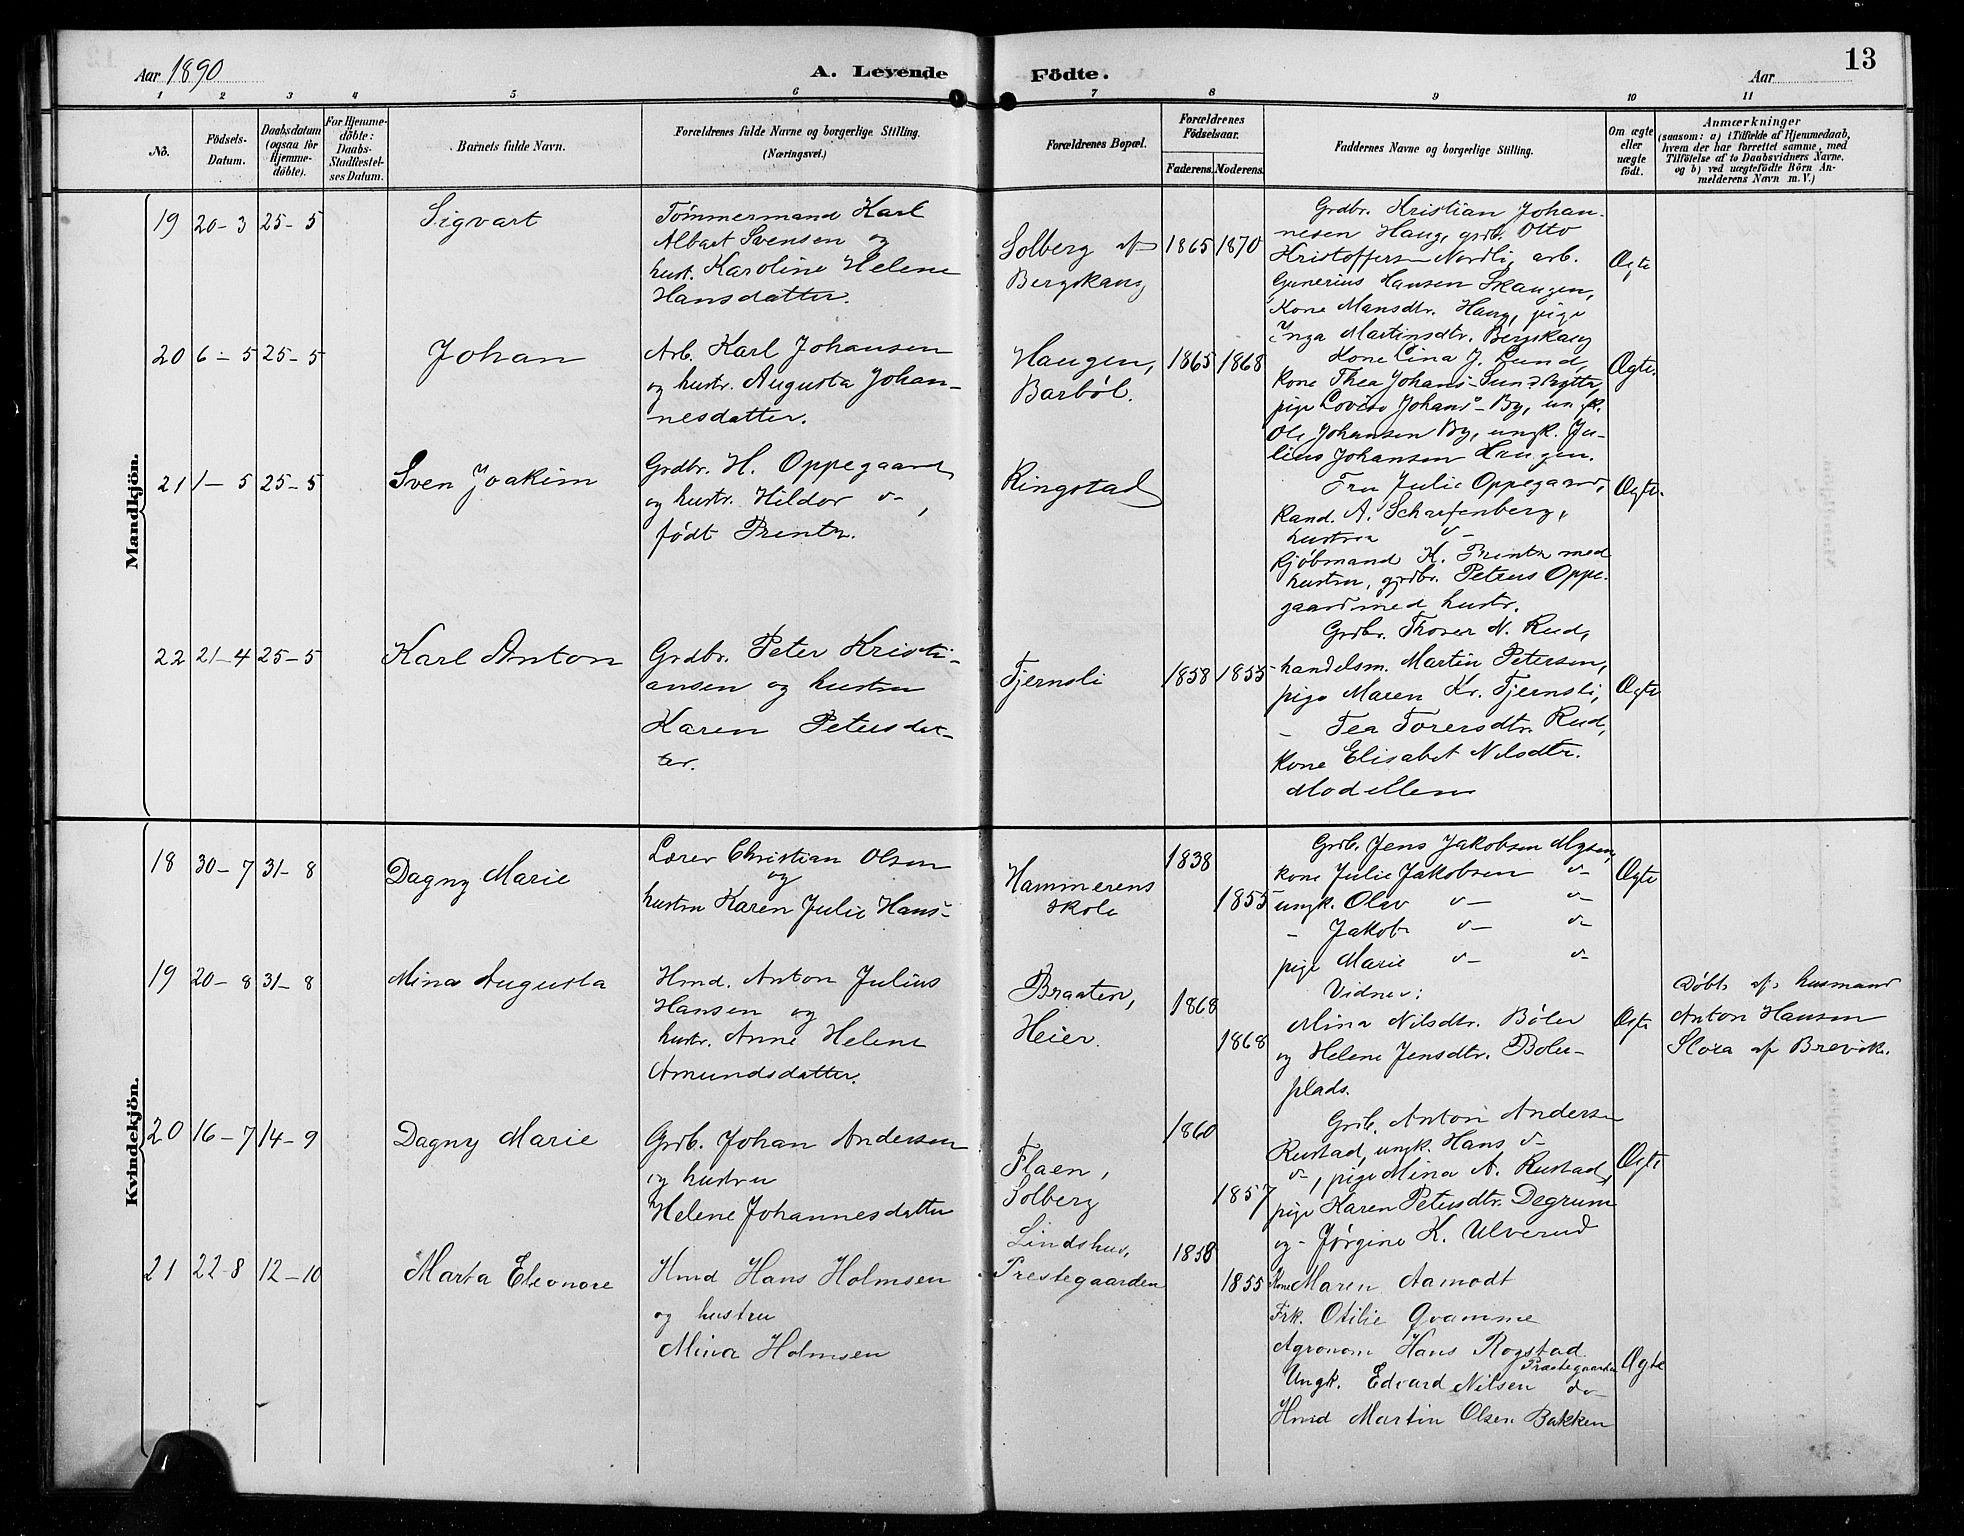 Aar 1890
A. Levende Födte.
Aar
13
1 2 3 4 5 6 7 8 9 10 11
No.
Födsels-
Datum.
Daabsdatum
(ogsaa for
Hjemme-
döbte).
For Hjemme-
döbte:
Daabs-
Stadfæstel-
ses Datum.
Barnets fulde Navn.
Forældrenes fulde Navne og borgerlige Stilling.
(Næringsvei.)
Forældrenes Bopæl.
Forældrenes
Födselsaar.
Faderens.
Moderens.
Faddernes Navne og borgerlige Stilling.
Om ægte
eller
uægte
födt.
Anmærkninger
(saasom: a) i Tilfælde af Hjemmedaab,
hvem der har forrettet samme, med
Tilföielse af to Daabsvidners Navne.
og b) ved uægtefödte Börn An-
melderens Navn m. V.)
Mandkjön.
19 20-3 25-5
Sigvart
Tömmermand Karl
Albart Svensen og
hust. Karoline Helene
Hansdatter.
Solberg af
Bergskaug
1865 1870
Grdbr. Kristian Johan-
nesen Haug, grdb. Otto
Kristoffersen Nordli, arb.
Gunerius Hansen Skaugen,
Kone Mansdtr. Haug, pige
Inga Martinsdtr. Bergskaug
Ægte
20 6-5 25-5
Johan
Arb. Karl Johansen
og hustr. Augusta Johan-
nesdatter.
Haugen,
Barböl.
1865 1868
Kone Lina J. Lund,
kone Thea Johans- Sundbytte,
pige Lovise Johans- By, ungk.
Ole Johansen By, ungk. Ju-
lius Johansen Haugen.
Ægte.
21 1-5 25-5
Sven Joakim
Grdbr. H. Oppegaard
og hustr. Hildor d-,
født Prentz.
Ringstad
Fru Julie Oppegaard,
Kand. A. Scharfenberg,
hustru d-
Kjöbmand K. Prentz med
hustru, grdbr. Petrus Oppe-
gaard med hustr.
Ægte.
22 21-4 25-5
Karl Anton
Grdbr. Peter Kristi-
ansen og hustru
Karen Petersdat-
ter.
Tjernsli
1858 1855
Grdbr. Thorer N. Rud,
handelsm. Martin Petersen,
pige Maren Kr. Tjernsli,
- Tea Torersdtr. Rud,
kone Elisabet Nilsdtr.
Modellen
Ægte
Kvindekjön.
18 30-7 31-8
Dagny Marie
Lærer Christian Olsen
og
hustru Karen Julie Hans-
Hammerens
skole
1838
1855
Grdb. Jens Jakobsen Mysen,
kone Julie Jakobsen d-
ungk. Olav d- d-
- Jakob d- d-
pige Marie d- d-
Ægte
19 20-8 31-8
Mina Augusta
Hmd. Anton Julius
Hansen og
hustr. Anne Helene
Amundsdatter.
Braaten,
Heier.
1868
1868
Vidner:
Mina Nilsdtr. Böler
og Helene Jensdtr. Böler-
plads.
Ægte
Döbt af husmand
Anton Hansen
Slora af Brevik.
20 16-7 14-9
Dagny Marie
Grdb. Johan Andersen
og hustru
Helene Johannesdatter
Flaen,
Solberg
1860
1857
Grdb. Anton Andersen
Rustad, ungk. Hans d-
d-, pige Mina A. Rustad,
pige Karen Petersdtr. Degrum
og - Jørgine K. Ulverud
Ægte
21 22-8 12-10
Marta Eleonore
Hmd Hans Holmsen
og hustru
Mina Holmsen
Lindshus,
Prestegaarden
1858
1855
Kone Maren Aamodt
Frk. Otilie Qvamme
Agronom Hans Rogstad
Præstegaarden
Ungk. Edvard Nilsen do-
Hmd Martin Olsen Bakken
Ægte